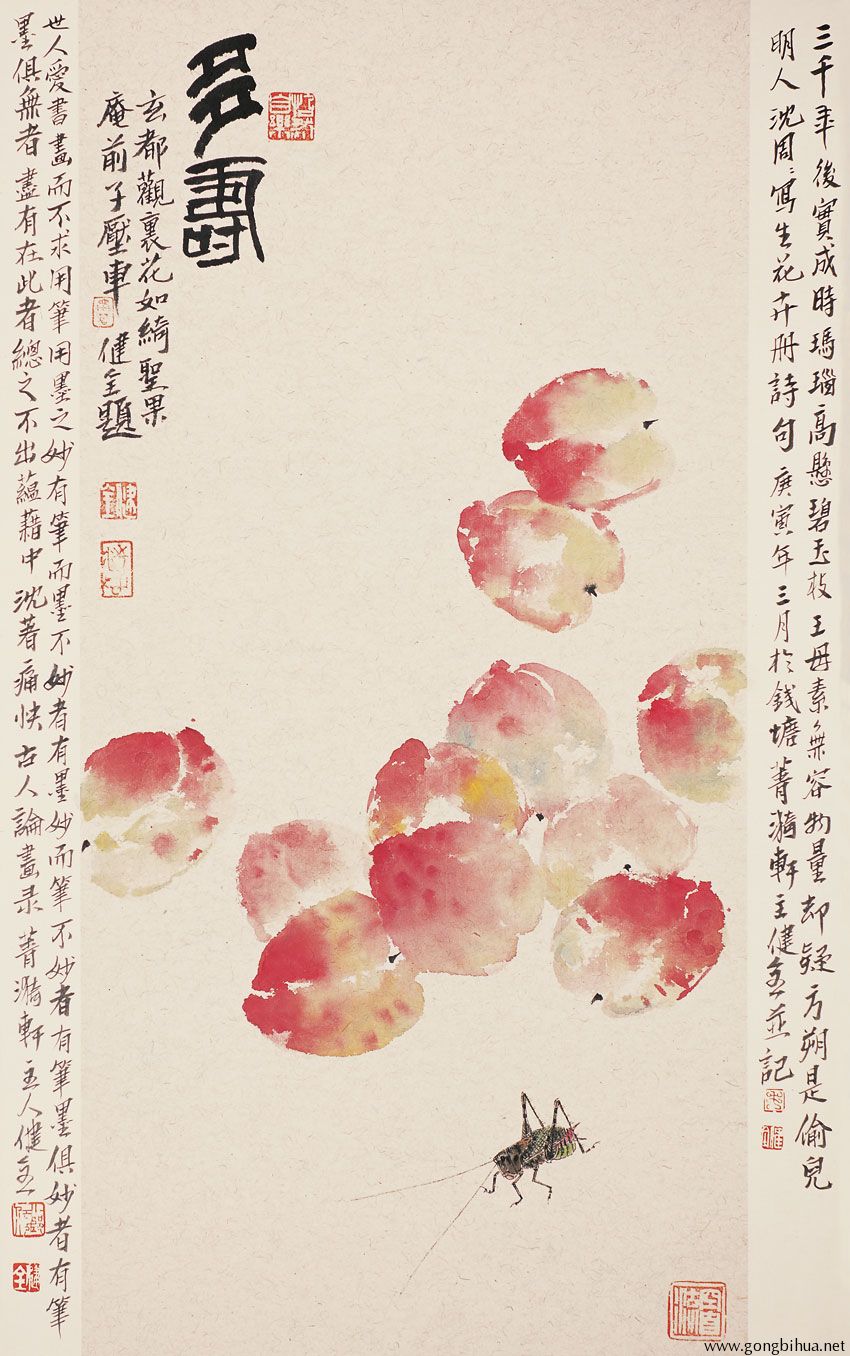 三千年後實成時瑪瑙高懸碧玉枝王母素無容物量却疑方朔是偷兒
明人沈周〻寫生花卉冊詩句庚寅年三月於錢塘菁漪軒主健全並記
多壽
玄都觀裏花如綺聖果
庵前子壓車健全題
世人愛書畫而不求用筆用墨之妙有筆妙而墨不妙者有墨妙而筆不妙者有筆墨俱妙者有筆
墨俱無者盡有在此者總之不出蘊藉中沈著痛快古人論畫录菁漪軒主人健全
www.gongbihua.net